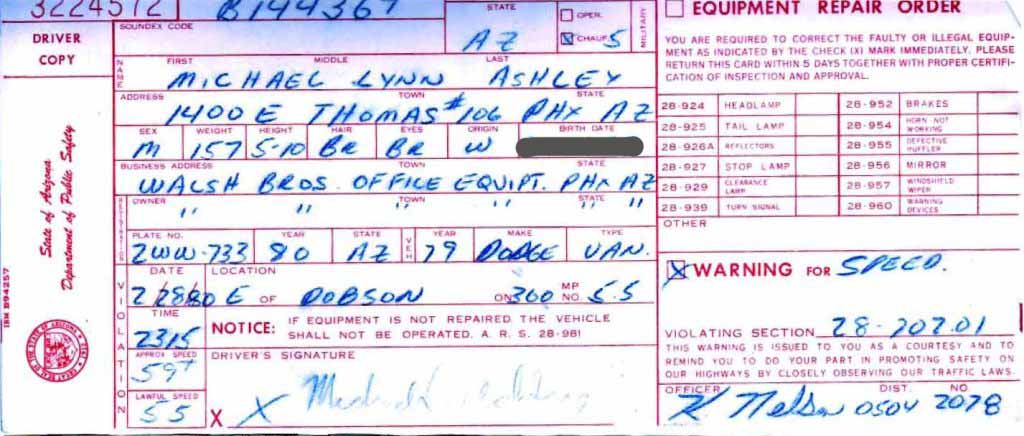 3224512 B144367 STATE ☐ OPER. MILITARY ☐ EQUIPMENT REPAIR ORDER
DRIVER COPY
SOUNDEX CODE AZ ☒ CHAUF. 5
YOU ARE REQUIRED TO CORRECT THE FAULTY OR ILLEGAL EQUIP-
MENT AS INDICATED BY THE CHECK (X) MARK IMMEDIATELY. PLEASE
RETURN THIS CARD WITHIN 5 DAYS TOGETHER WITH PROPER CERTIFI-
CATION OF INSPECTION AND APPROVAL.
NAME FIRST MIDDLE LAST
MICHAEL LYNN ASHLEY
ADDRESS TOWN STATE
1400 E THOMAS #106 PHX AZ
SEX WEIGHT HEIGHT HAIR EYES ORIGIN BIRTH DATE
M 157 5-10 BR BR W
BUSINESS ADDRESS TOWN STATE
WALSH BROS. OFFICE EQUIPT. PHX AZ
REGISTRATION OWNER TOWN STATE
" " " "
PLATE NO. YEAR STATE VEH YEAR MAKE TYPE
2WW-733 80 AZ 79 DODGE VAN.
28-924 HEADLAMP 28-952 BRAKES
28-925 TAIL LAMP 28-954 HORN NOT WORKING
28-926A REFLECTORS 28-955 DEFECTIVE MUFFLER
28-927 STOP LAMP 28-956 MIRROR
28-929 CLEARANCE LAMP 28-957 WINDSHIELD WIPER
28-939 TURN SIGNAL 28-960 WARNING DEVICES
OTHER
State of Arizona
Department of Public Safety
IBM D94257
VIOLATION
DATE LOCATION
2/28/80 E OF DOBSON ON 360 MP NO. 5.5
TIME
2315
NOTICE: IF EQUIPMENT IS NOT REPAIRED, THE VEHICLE
SHALL NOT BE OPERATED. A. R. S. 28-981
APPROX SPEED
59+
LAWFUL SPEED
55
DRIVER'S SIGNATURE
X X
☒ WARNING FOR SPEED.
VIOLATING SECTION 28-702.01
THIS WARNING IS ISSUED TO YOU AS A COURTESY AND TO
REMIND YOU TO DO YOUR PART IN PROMOTING SAFETY ON
OUR HIGHWAYS BY CLOSELY OBSERVING OUR TRAFFIC LAWS.
OFFICER DIST. NO.
K Nelson 0504 2078